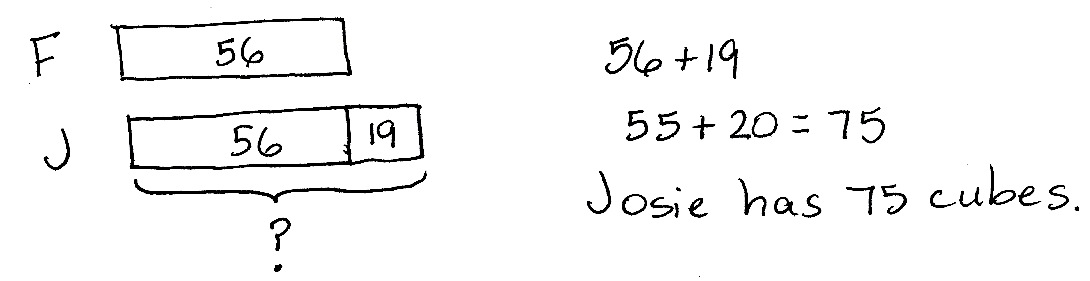 F 56
J 56 19
?
56 + 19
55 + 20 = 75
Josie has 75 cubes.